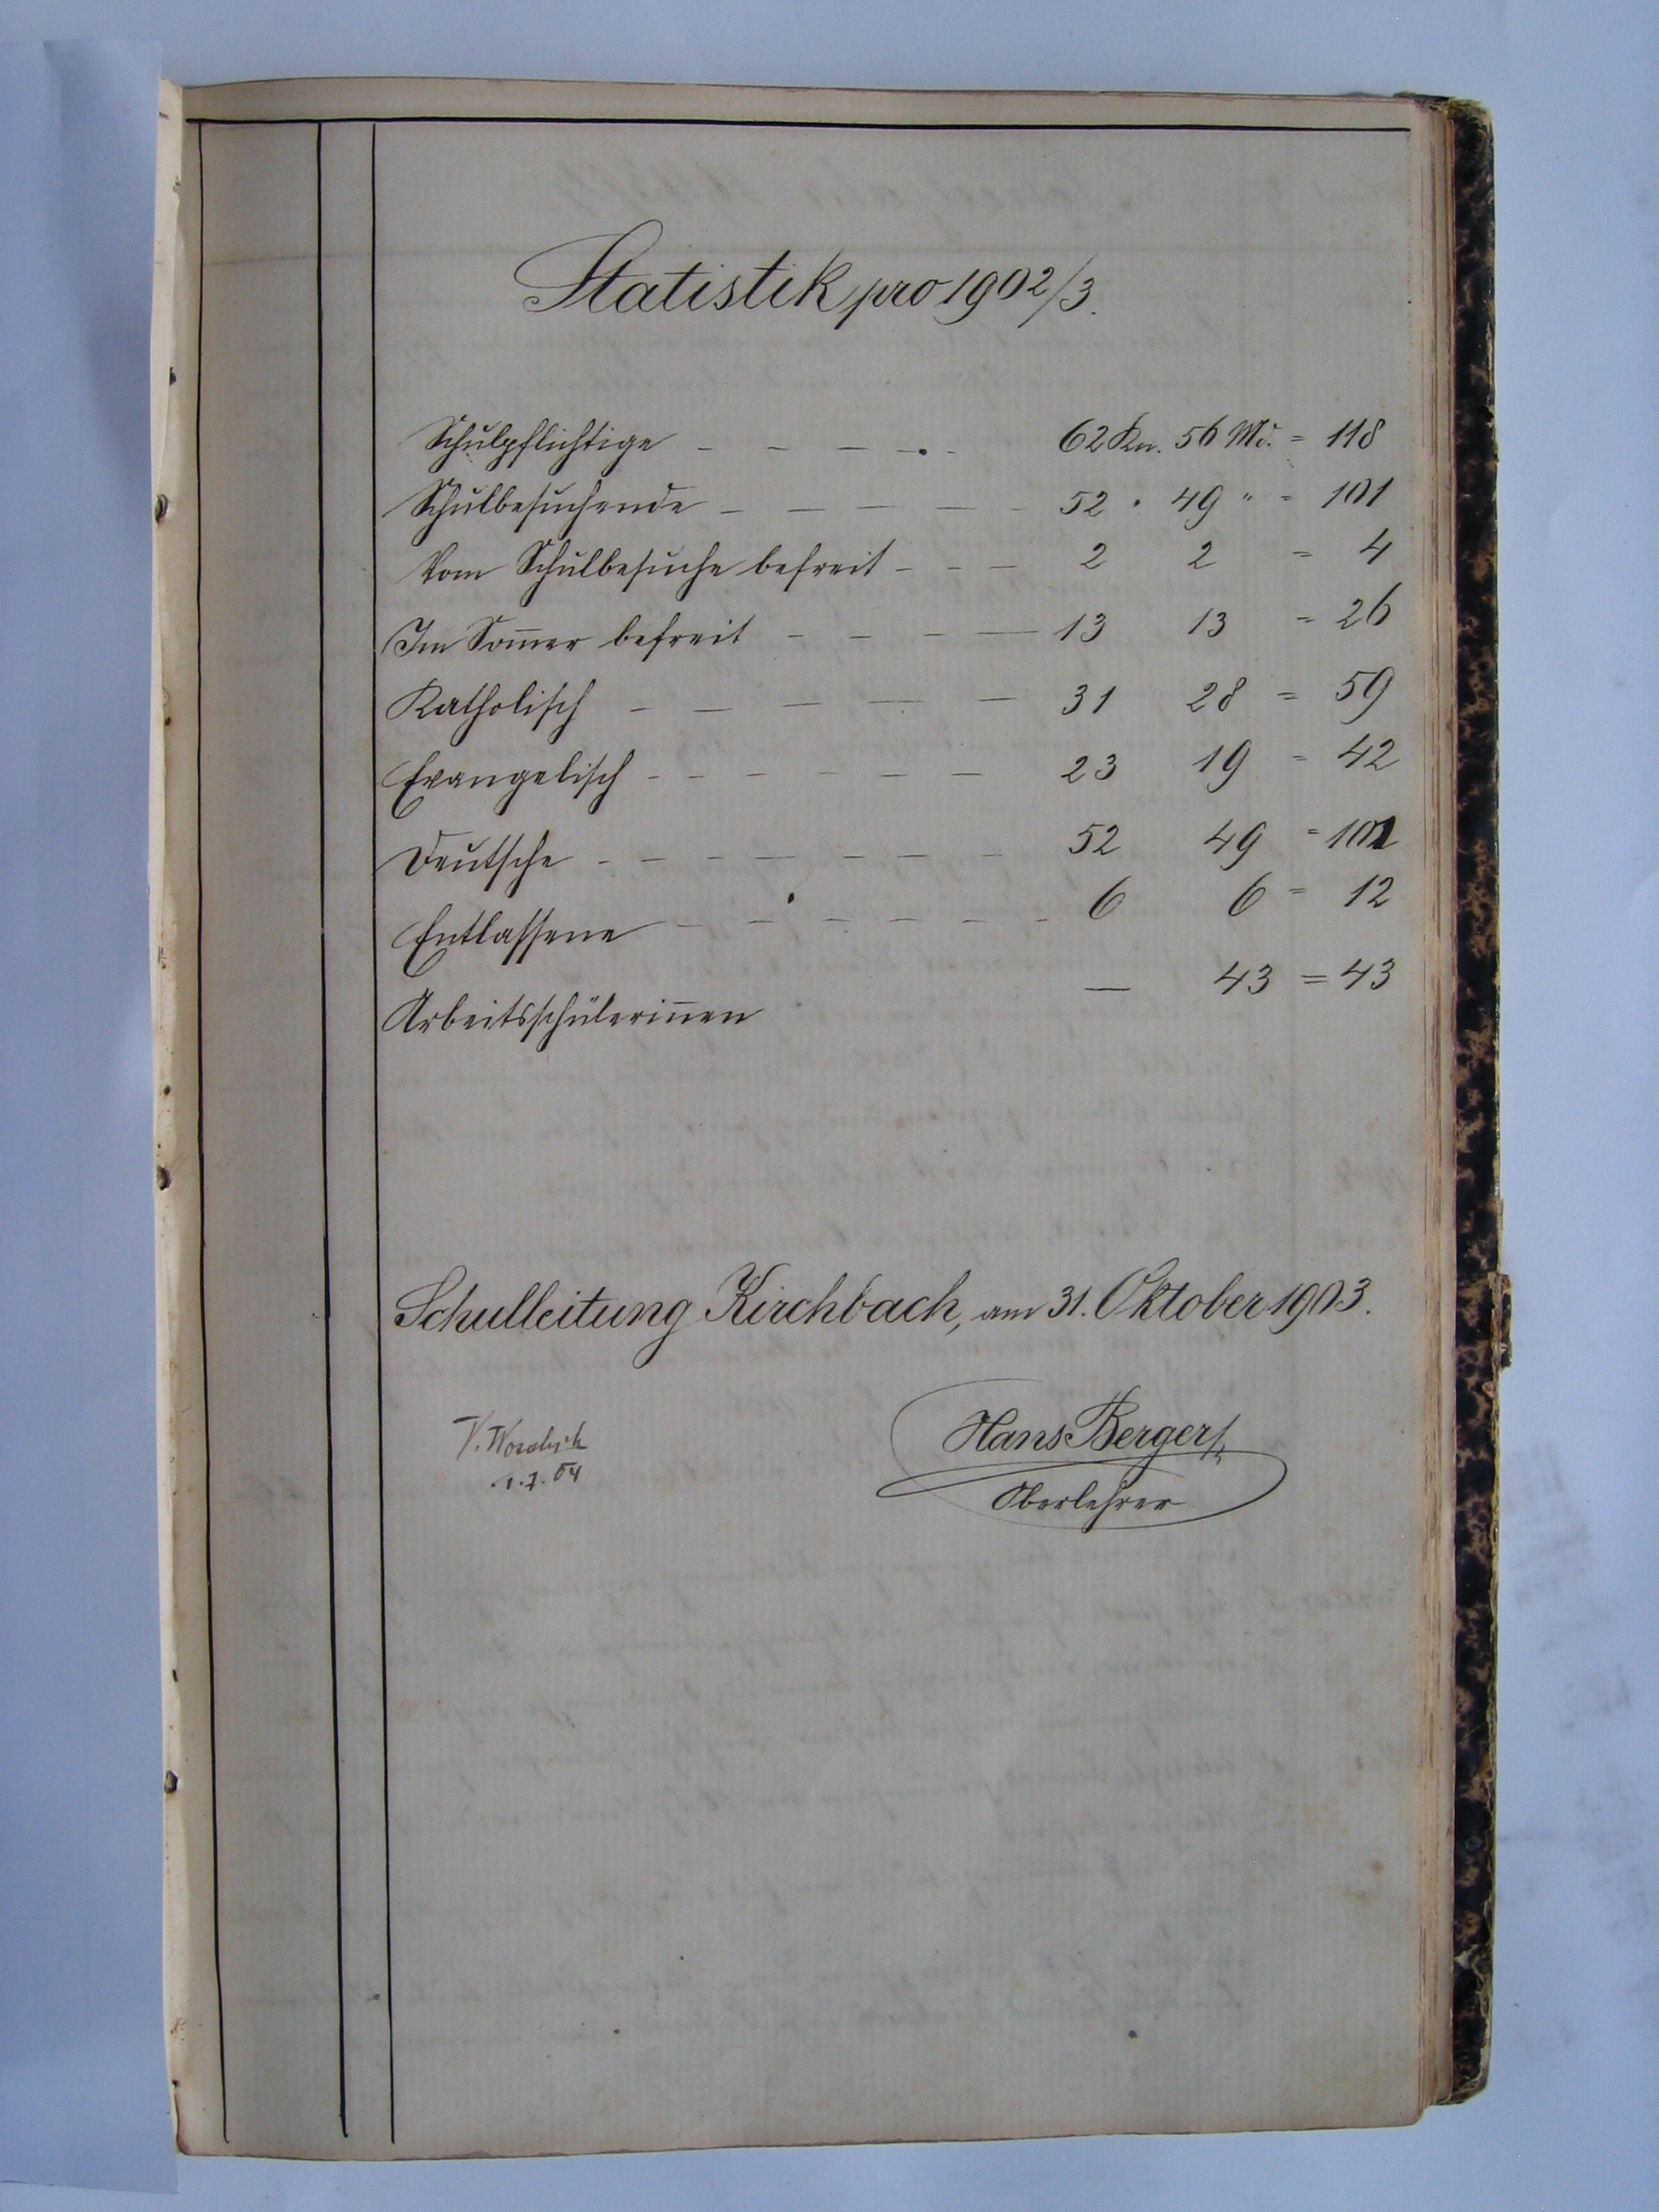 Statistik pro 1902/3.
Schulpflichtige – – – – – 62 Kn. 56 Md. = 118
Schulbesuchende – – – – – – 52 " 49 " = 101
Vom Schulbesuche befreit – – – 2 2 = 4
Im Som̅er befreit – – – — 13 13 = 26
Katholisch – – – – – 31 28 = 59
Evangelisch – – – – – – – 23 19 = 42
Deutsche – – – – – – – – 52 49 = 101
Entlassene – – – – – – – 6 6 = 12
Arbeitsschülerin̅en — 43 = 43
Schulleitung Kirchbach, am 31. Oktober 1903.
Hans Berger
Oberlehrer
1.7.04